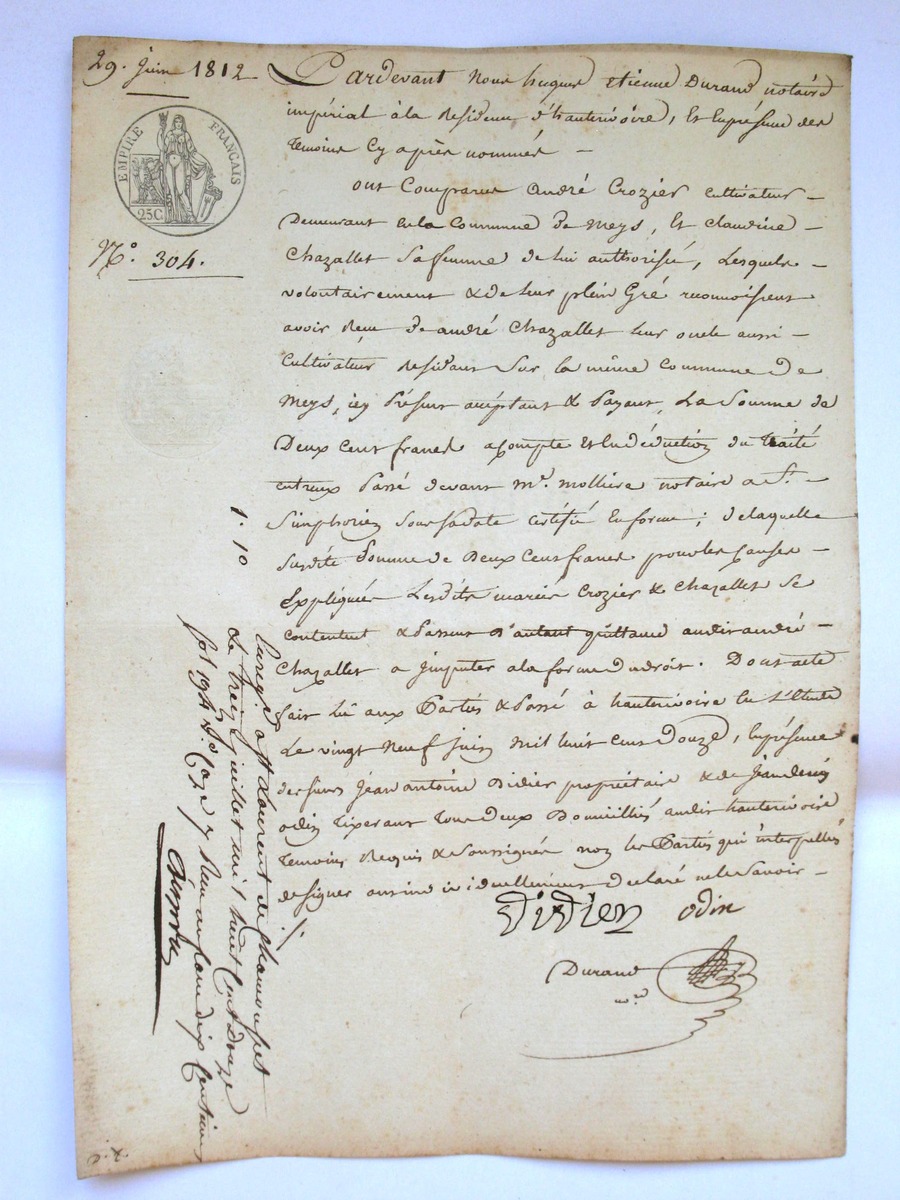 29. juin 1812
EMPIRE FRANÇAIS
25C
N.° 304.
Pardevant nous hugues etienne Durand notaire
impérial à la Residence d'hauterivoire, et En présence des
temoins Cy après nommés
ont Comparus andré Crozier cultivateur
Demeurant en la Commune de meys, Et claudine
Chazallet sa femme de lui authorisée, Lesquels
volontairement & de leur plein Gré reconnoissent
avoir Reçu de andré Chazallet leur oncle aussi
Cultivateur Residant sur la même Commune de
meys, icy Présent acéptant & Payant, La Somme de
Deux cent francs acompte et En déduction du traité
entreux Passé devant m.e molliere notaire a S.t
Simphorien sous sa date certifié En forme ; de laquelle
susdite Somme de Deux Cent francs pour les Causes
Expliquées Lesdits mariés Crozier & Chazallet se
contentent & Passent d'autant quittance audit andré
Chazallet a jmputer a la forme du droit. Dont acte
fait lû aux Parties & Passé à hauterivoire En l'Etude
Le vingt Neuf juin mil huit cent Douze, En présence
des sieurs jean antoine Didier propriétaire & de jean denis
odin tixerant tous deux Domiciliés audit hauterivoire
temoins Requis & Soussignés non les Parties qui interpellés
de signer ont individuellement déclaré ne le Savoir
Didier odin
Durand
n.re
1. 10
Enreg.é a St Laurent de chamousset
Le treize juillet mil huit Cent Douze
fol 194 v.° Caze 7 Reçu un franc dix Centimes